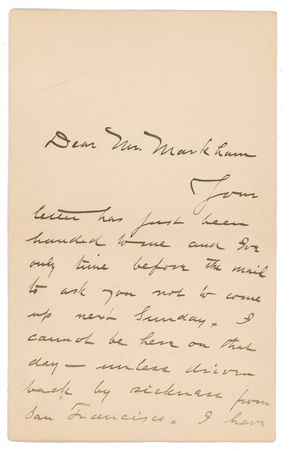 Dear Mr. Markham
Your
letter has just been
handed to me and I've
only time before the mail
to ask you not to come
up next Sunday. I
cannot be here on that
day — unless driven
back by sickness from
San Francisco. I have